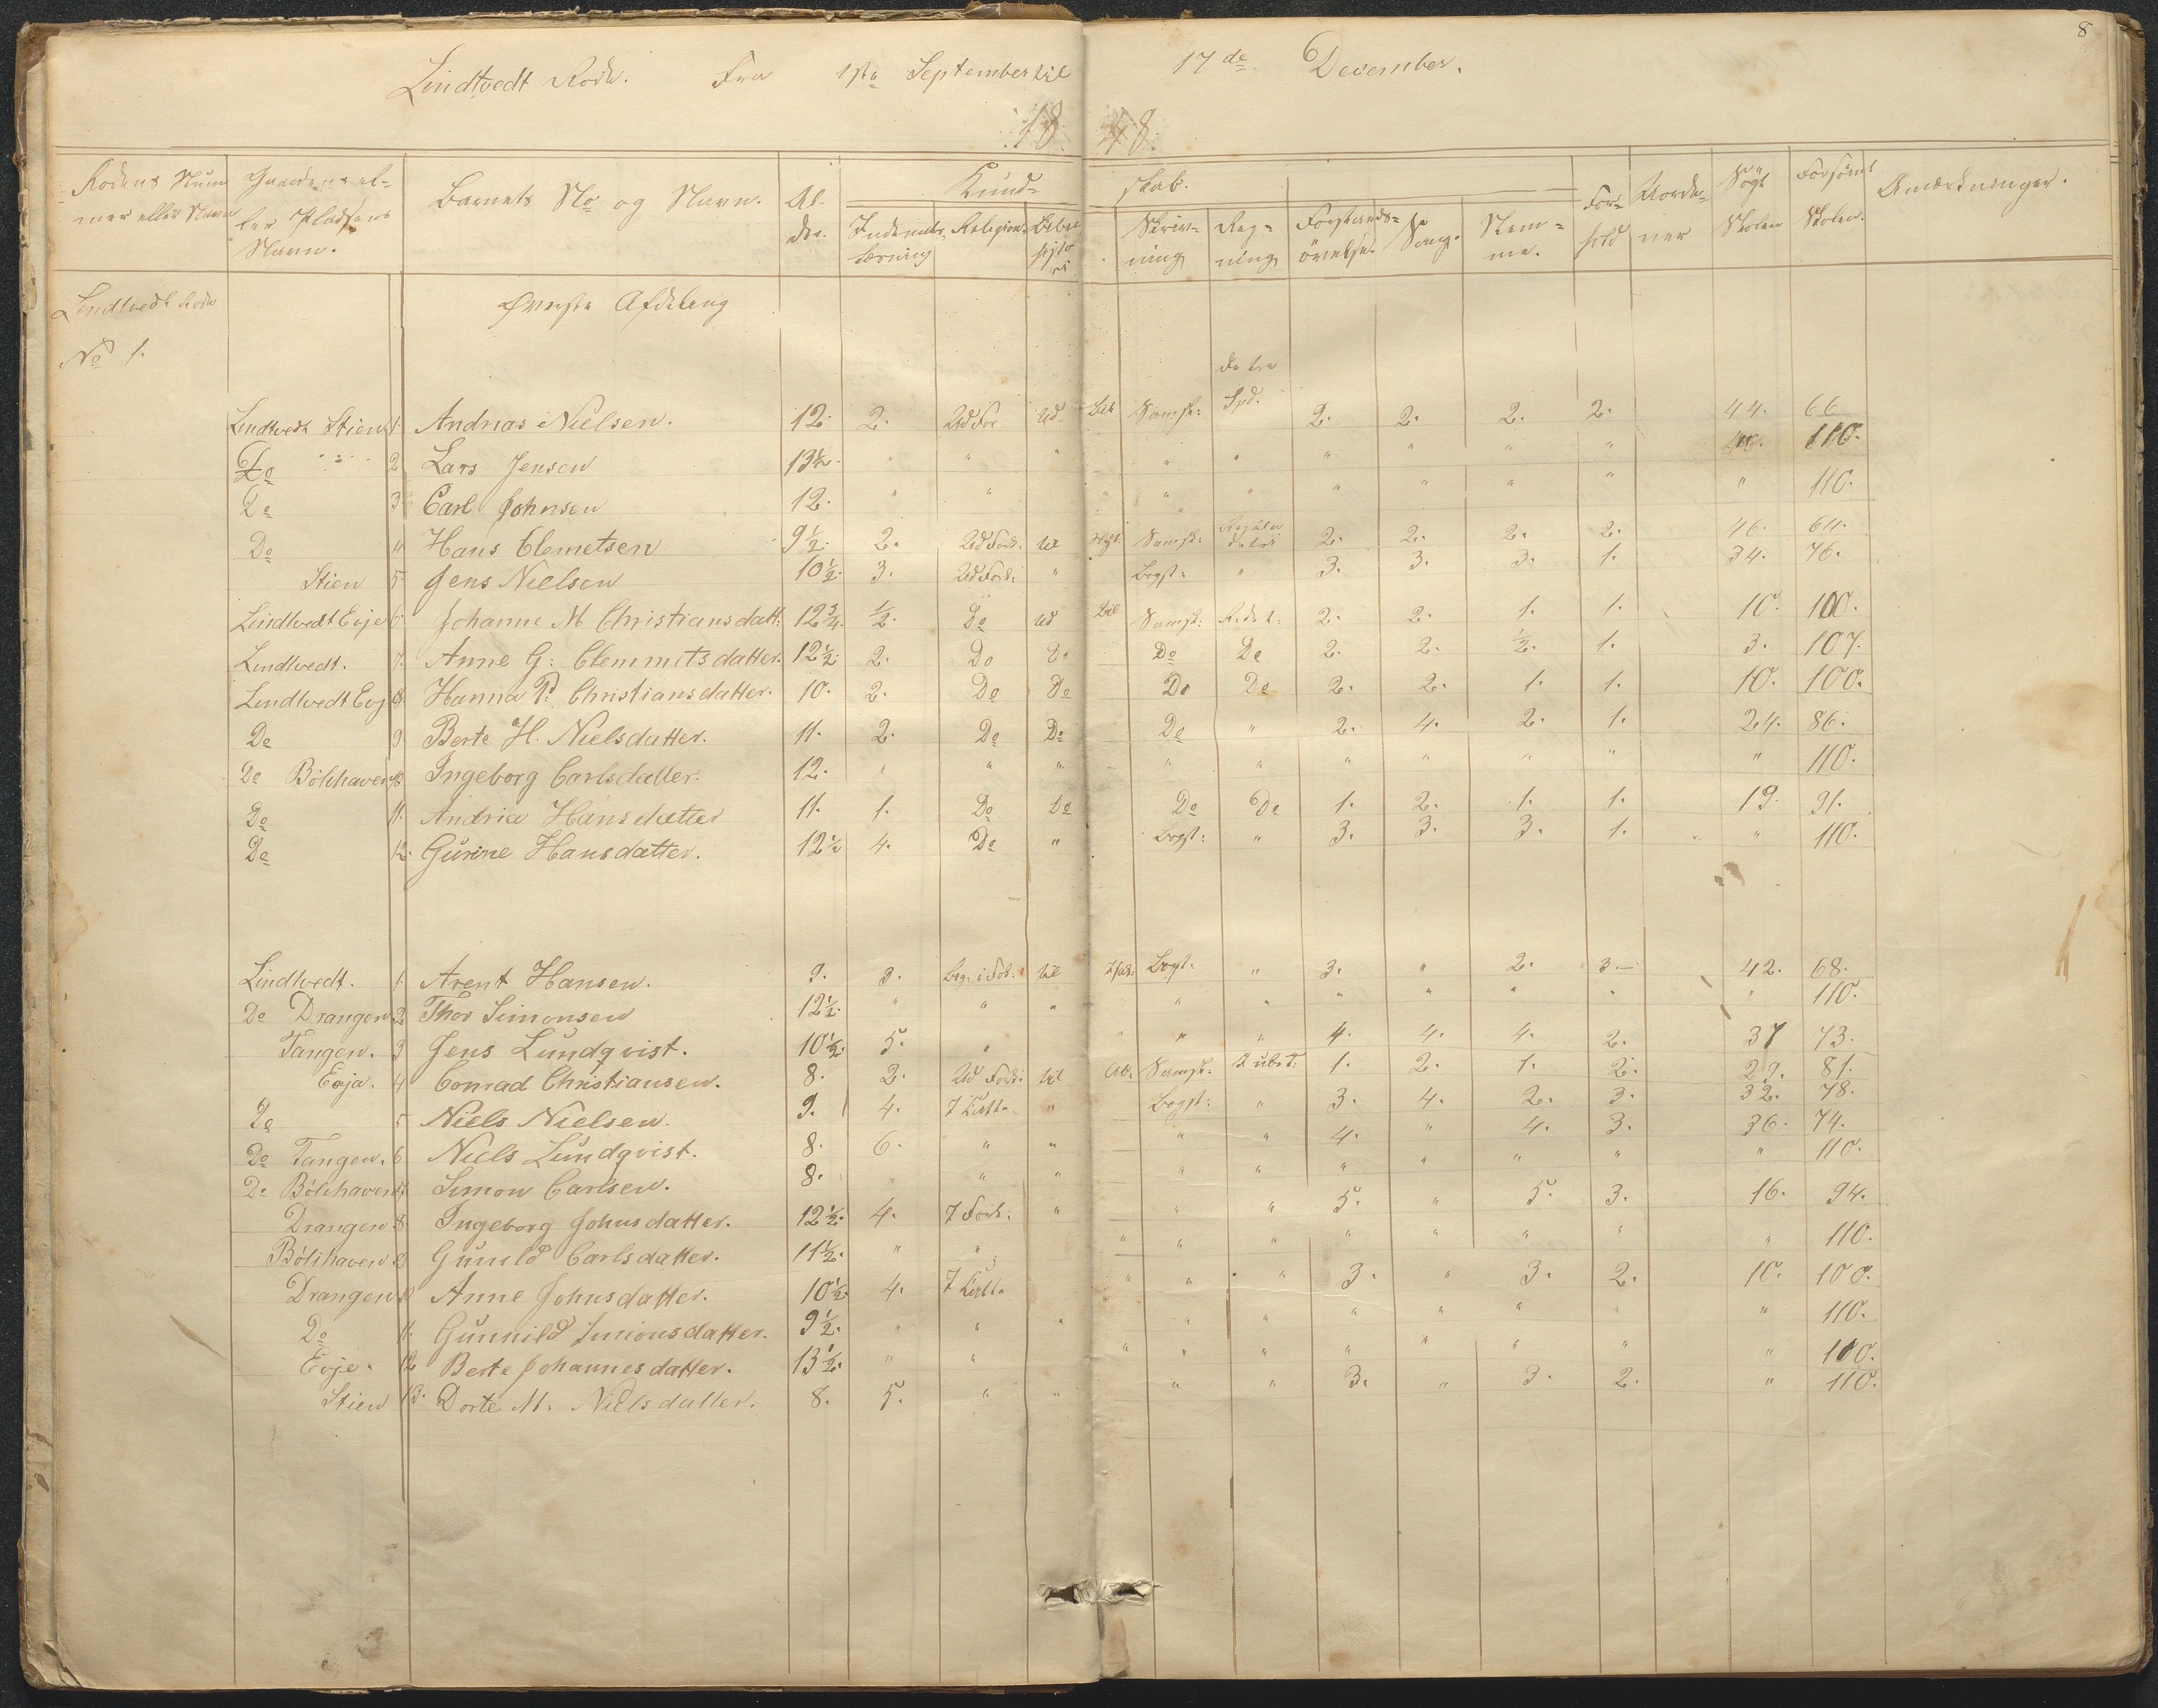 8
Lindtvedt Rode. Fra 1ste September til 17de December.
18 48.
Rodens Num mer eller Navn Gaardens el= ler Pladsens Navn. Barnets No og Navn. Al- der. Kund= skab. For= hold Vorde= ner Søgt Skolen Forsømt Skolen. Anmærkninger.
Indenads- læsning Religion Bibel histo ri Skriv= ning Reg= ning Forstands= øvelse. Sang. Stem= me.
Lindtvedt Rode Øverste Afdeling
No 1.
Lindtvedt Stien 1. Andreas Nielsen. 12. 2. Ud For Ud 2. 2. 2. 2. 44. 66
Do 2 Lars Jensen 13½. " " " " " " " " " 110.
Do 3 Carl Johnsen 12. " " " " " " " " " " 110.
Do " Hans Clemetsen 9½. 2. Ud Fork. 2. 2. 2. 2. 46. 64.
Stien 5 Jens Nielsen 10½. 3. Ud Fork: " Begst: " 3. 3. 3. 1. 34. 76.
Lindtvedt Evje 6 Johanne M Christiansdatt: 12¾. ½. Do Ud 2. 2. 1. 1. 10. 100.
Lindtvedt. 7. Anne G: Clemmitsdatter. 12½ 2. Do Do Do Do 2. 2. ½. 1. 3. 107.
Lindtvedt Evj 8. Hanna P. Christiansdatter. 10. 2. Do Do Do Do 2. 2. 1. 1. 10. 100.
Do 9 Berte H. Nielsdatter. 11. 2. Do Do Do " 2. 4. 2. 1. 24. 86.
Do Bölihaven 10. Ingeborg Carlsdatter. 12. " " " " " " " " " " 110.
Do 11. Andria Hansdatter 11. 1. Do Do Do Do 1. 2. 1. 1. 19. 91.
Do 12. Gurine Hansdatter. 12½ 4. Do " Begst: " 3. 3. 3. 1. " 110.
Lindtvedt. 1. Arent Hansen. 9. 3. Beg: i For: " 3. " 2. 3 42. 68.
Do Drangen 2 Thor Simonsen 12½. " " " " " " " " " " 110.
Tangen. 3 Jens Lundqvist. 10½. 5. " " " " 4. 4. 4. 2. 37 73.
Evja. 4 Conrad Christiansen. 8. 2. Ud Fork: 1. 2. 1. 2. 29. 81.
Do 5 Niels Nielsen. 9. 4. " Begst: " 3. 4. 2. 3. 32. 78.
Do Tangen. 6 Niels Lundqvist. 8. 6. " " " " 4. " 4. 3. 36. 74.
Do Bölihaven 7. Simon Carlsen. 8. " " " " " " " " " " 110.
Drangen 8. Ingeborg Johnsdatter. 12½. 4. I Fork: " " " 5. " 5. 3. 16. 94.
Bölihaven 9 Gunild Carlsdatter. 11½. " " " " " " " " " " 110.
Drangen 10 Anne Johnsdatter. 10½. 4. " " " 3. " 3. 2. 10. 100.
Do 11. Gunnild Simonsdatter. 9½. " " " " " " " " " " 110.
Evje. 12 Berte Johannesdatter. 13½. " " " " " " " " " " 100.
Stien 13. Dorte M. Nielsdatter. 8. 5. " " " " 3. " 3. 2. " 110.